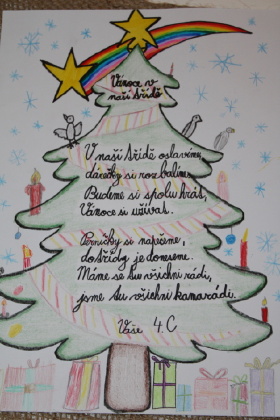 Vánoce v
naší třídě
V naší třídě oslavíme,
dárečky si rozbalíme.
Budeme si spolu hrát,
Vánoce si užívat.
Perníčky si napečeme,
do třídy je doneseme.
Máme se tu všichni rádi,
jsme tu všichni kamarádi.
Vaše 4.C